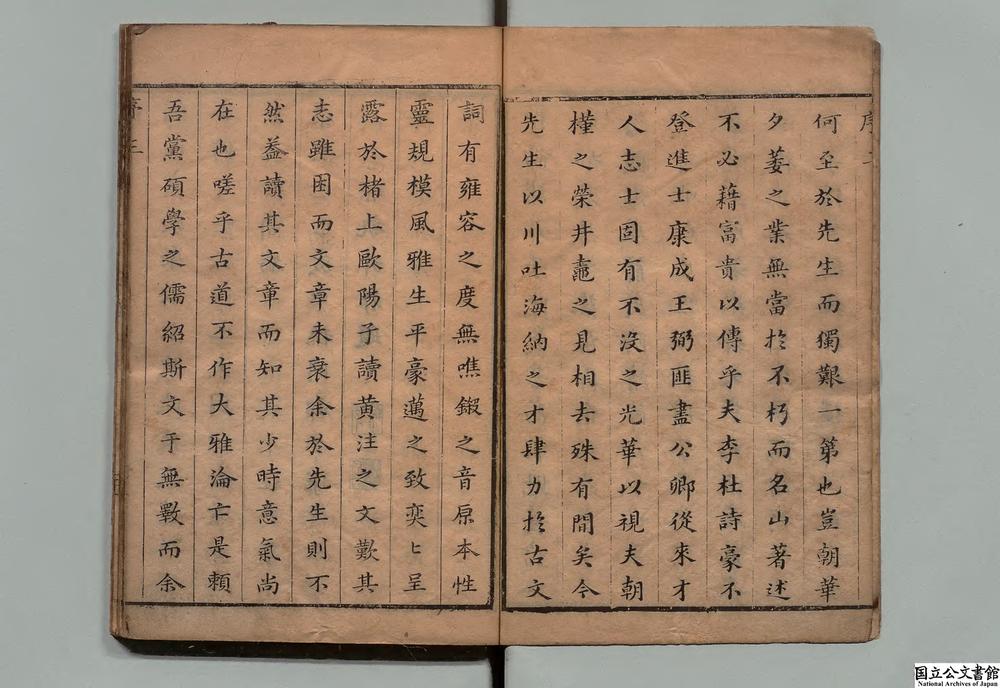 序二
何至於先生而獨艱一第也豈朝華
夕萎之業無當於不朽而名山著述
不必藉富貴以傳乎夫李杜詩豪不
登進士康成王弼匪盡公卿從來才
人志士固有不沒之光華以視夫朝
槿之榮井鼃之見相去殊有間矣今
先生以川吐海納之才肆力於古文
詞有雍容之度無噍鍛之音原本性
靈規模風雅生平豪邁之致奕〻呈
露於楮上歐陽子讀黃注之文歎其
志雖困而文章未衰余於先生則不
然蓋讀其文章而知其少時意氣尚
在也嗟乎古道不作大雅淪亡是賴
吾黨碩學之儒紹斯文于無斁而余
序三
国立公文書館
National Archives of Japan